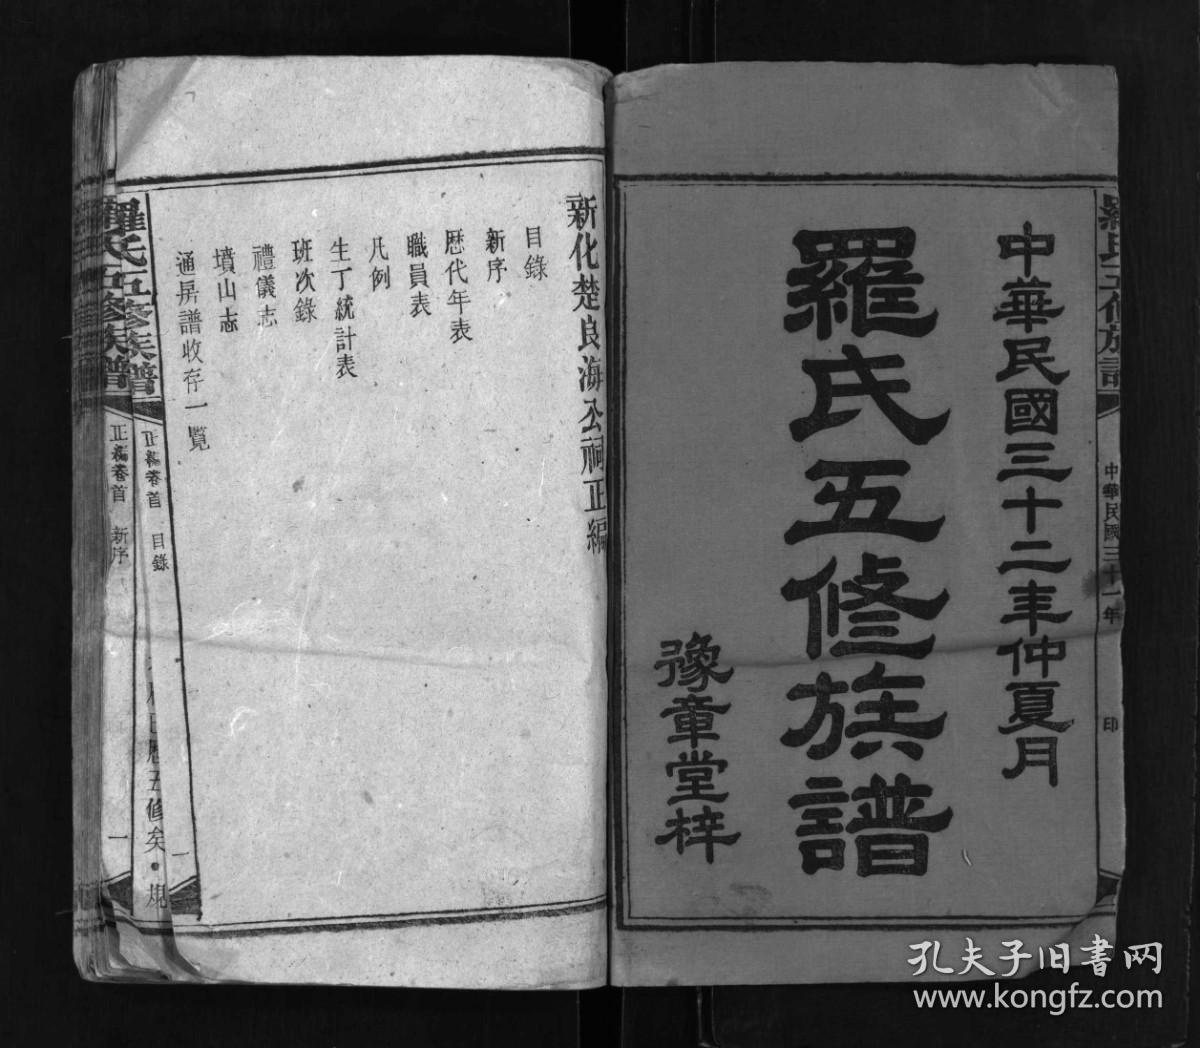 中華民國三十二年仲夏月
羅氏五修族譜
豫章堂梓
中華民國三十一年
印
新化楚良海公祠正編
目錄
新序
歷代年表
職員表
凡例
生丁統計表
班次錄
禮儀志
墳山志
通房譜收存一覽
羅氏五修族譜
正編卷首
目錄
一
羅氏五修族譜
正編卷首
新序
一
五修矣
規
孔夫子旧书网
www.kongfz.com